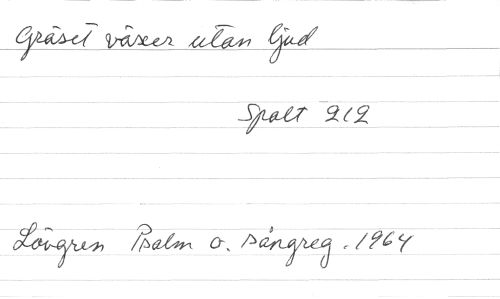 Gräset växer utan ljud
Spalt 212
Lövgren Psalm o. sångreg. 1964